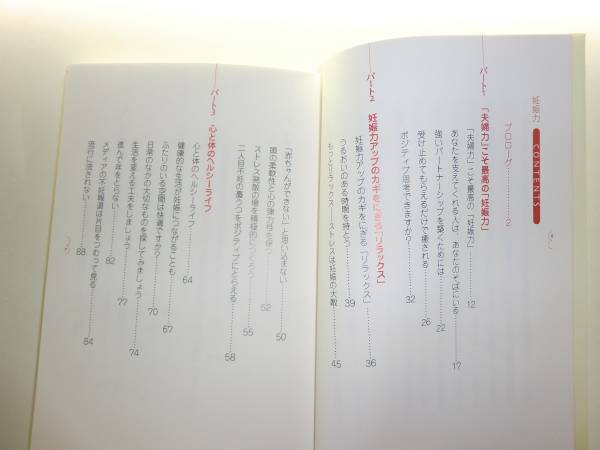 妊娠力 CONTENTS
プロローグ………2
パート1 「夫婦力」こそ最高の「妊娠力」
「夫婦力」こそ最高の「妊娠力」………12
あなたを支えてくれる人は、あなたのそばにいる………17
強いパートナーシップを築くためには………22
受け止めてもらえるだけで癒される………26
ポジティブ思考できますか?………32
パート2 妊娠力アップのカギをにぎる「リラックス」
妊娠力アップのカギをにぎる「リラックス」………36
うるおいのある時間を持とう………39
もっとリラックス——ストレスは妊娠の大敵………45
「赤ちゃんができない」と思い込まない………50
頭の柔軟性と心の弾力性を保つ………52
ストレス発散の場を積極的につくろう………55
二人目不妊の憂うつをポジティブにとらえる………58
パート3 心と体のヘルシーライフ
心と体のヘルシーライフ………64
健康的な生活が妊娠につながることも………67
ふたりのいる空間は快適ですか?………70
日常のなかの大切なものを探してみましょう………74
生活を変える工夫をしましょう………77
進んで年をとらない………82
メディアの不妊報道は片目をつむって見る………84
流行に流されない………88